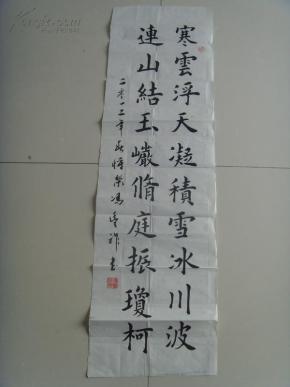 寒雲浮天凝積雪冰川波
連山結玉巖脩庭振瓊柯
二零一二年
馮
書